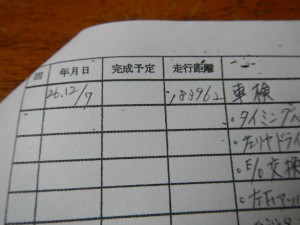 回 年月日 完成予定 走行距離
26.12/17 183962 車検
・タイミングベ
・左リヤドライ
・E/O交換
・左右アッパ